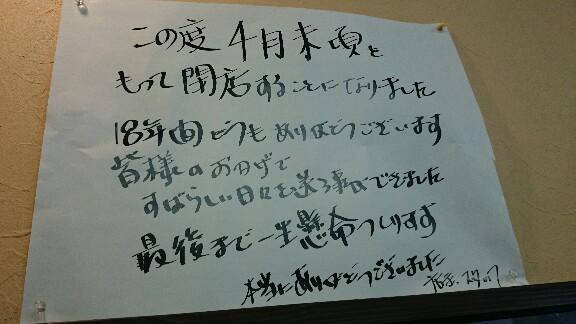 この度 4月末頃を
もって閉店することになりました
18年間どうもありがとうございます
皆様のおかげで
すばらしい日々を送る事ができました
最後まで一生懸命つくります
本当にありがとうございました
店主. スタッフ